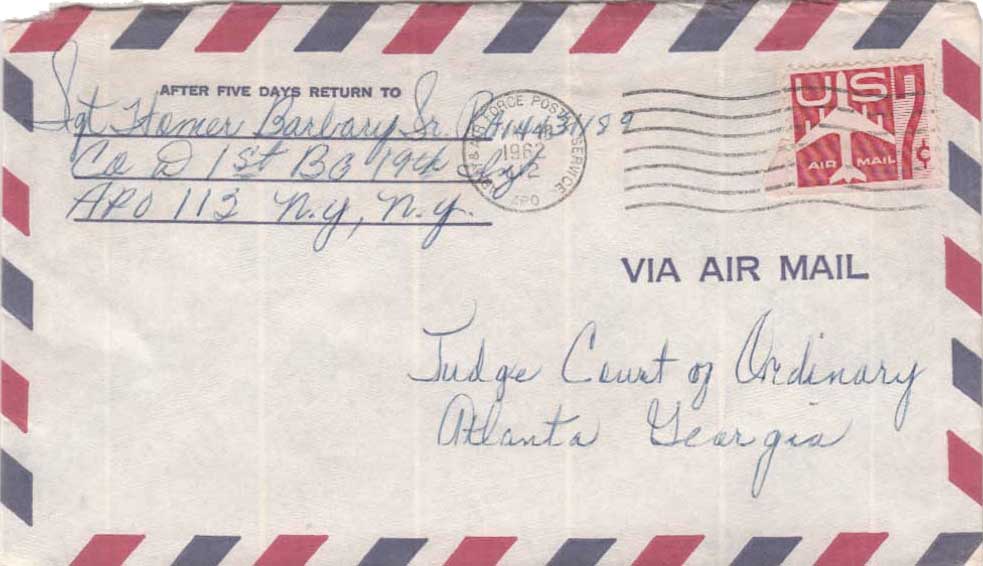 AFTER FIVE DAYS RETURN TO
Sgt Homer Barbary Sr.
Co D 1st BG 19th Inf
APO 113 N.Y, N.Y.
ARMY & AIR FORCE POSTAL SERVICE
1962
APO
US
7¢
AIR MAIL
VIA AIR MAIL
Judge Court of Ordinary
Atlanta Georgia